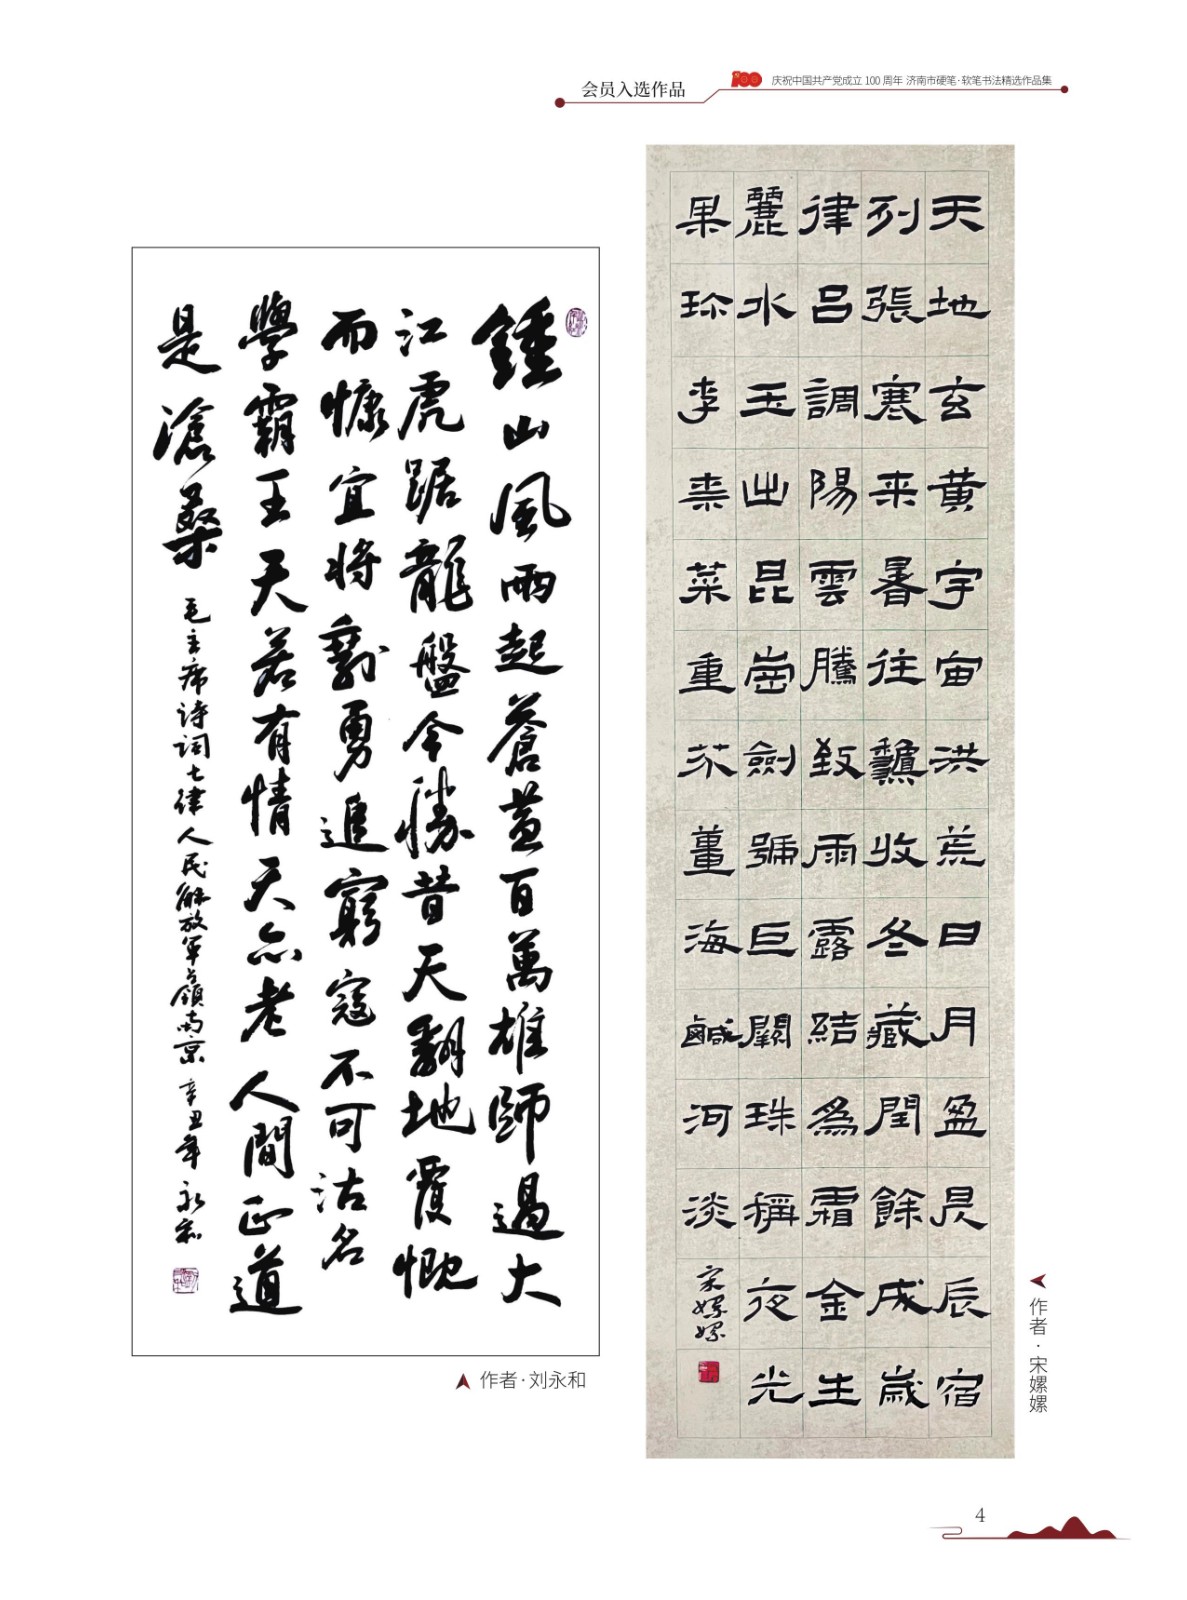 会员入选作品
100 庆祝中国共产党成立 100 周年 济南市硬笔·软笔书法精选作品集
鍾山風雨起蒼黃百萬雄師過大
江虎踞龍盤今勝昔天翻地覆慨
而慷宜將剩勇追窮寇不可沽名
學霸王天若有情天亦老人間正道
是滄桑 毛主席诗词七律人民解放軍占領南京 辛丑年 永和
作者·刘永和
天地玄黃宇宙洪荒日月盈昃辰宿
列張寒来暑往龝收冬藏閏餘成歲
律吕調陽雲騰致雨露結為霜金生
麗水玉出昆崗劍號巨闕珠稱夜光
果珍李柰菜重芥薑海鹹河淡
宋嫘嫘
作者·宋嫘嫘
4